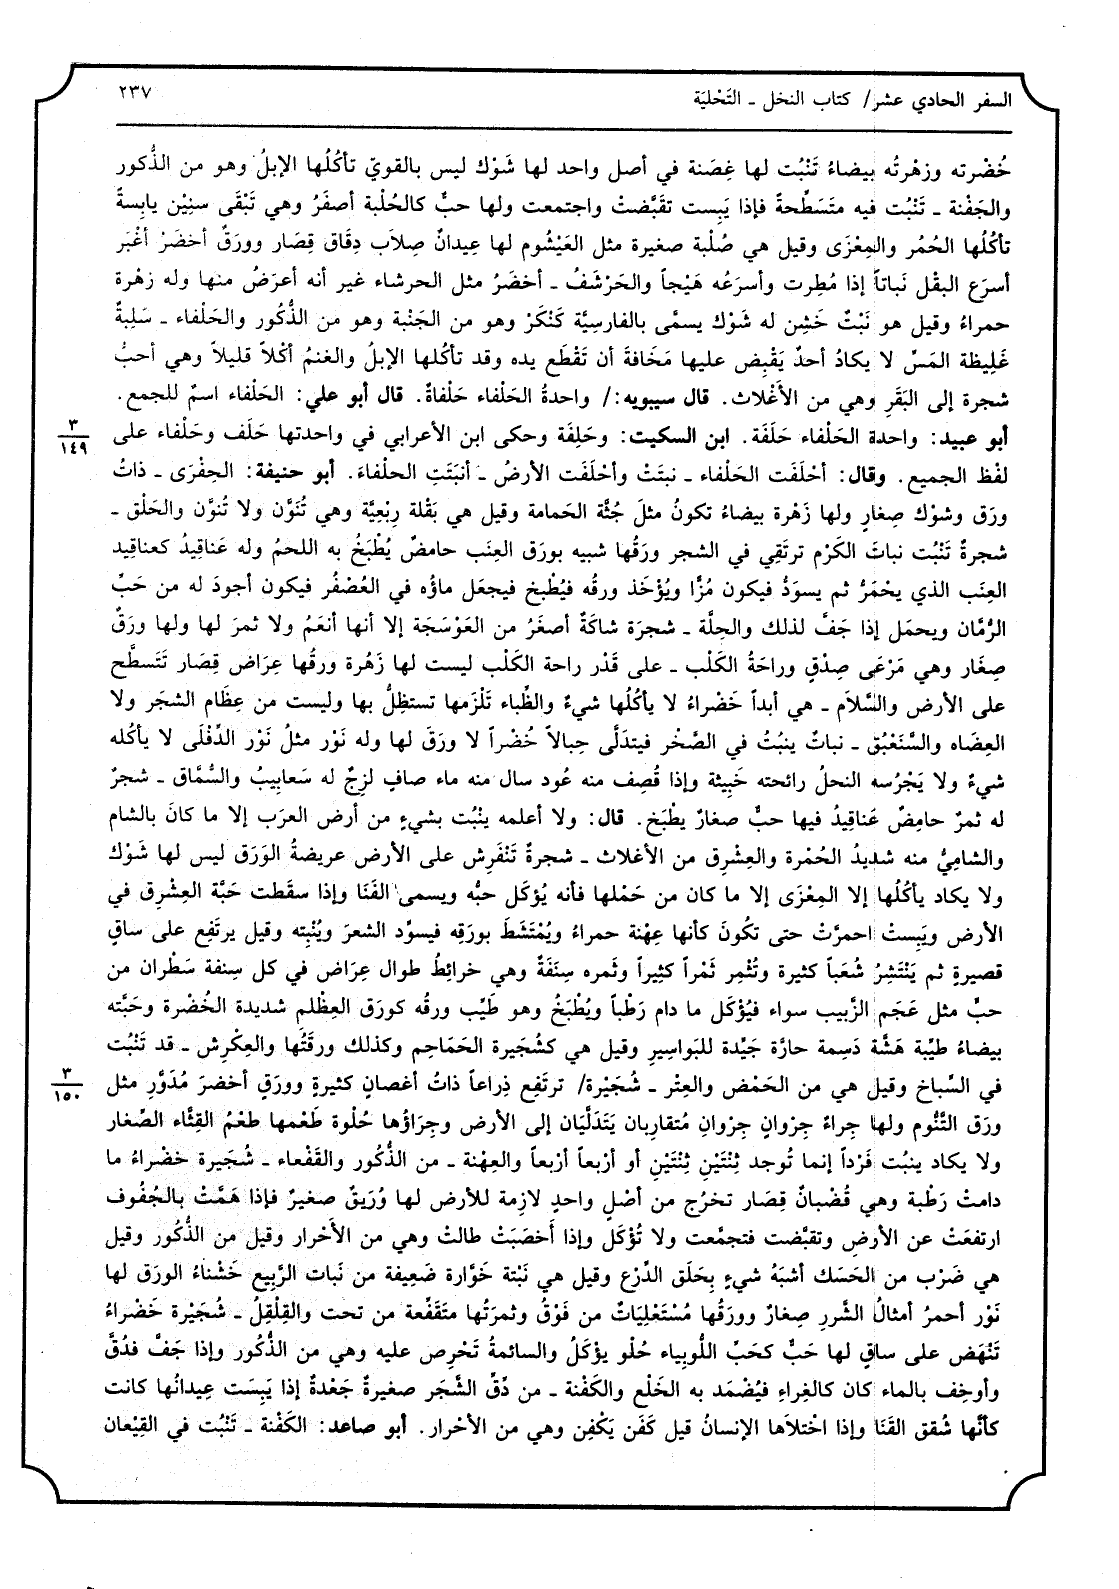 السفر الحادي عشر/ كتاب النخل ـ التَحْليَة
٢٣٧
خُضْرته وزهْرتُه بيضاءُ تَنْبُت لها غِصَنة في أصل واحد لها شَوْك ليس بالقويّ تأكُلُها الإبلُ وهو من الذُّكور
والجَفْنة ـ تَنْبُت فيه متَسَطِّحةً فإذا يَبِست تقَبَّضت واجتمعت ولها حبٌّ كالحُلْبة أصفَرُ وهي تَبْقَى سنِيْن يابِسةً
تأكُلُها الحُمُر والمِعْزَى وقيل هي صُلْبة صغيرة مثل العَيْشُوم لها عِيدانٌ صِلاَب دِقَاق قِصَار وورَقٌ أخضَرْ أغْبَر
أسرَع البقْل نَباتاً إذا مُطِرت وأسرَعُه هَيْجاً والحَرْشَفُ ـ أخضَرُ مثل الحرشاء غير أنه أعرَضُ منها وله زهْرة
حمراءُ وقيل هو نَبْتٌ خَشِن له شَوْك يسمَّى بالفارسِيَّة كَنْكَرْ وهو من الجَنْبة وهو من الذُّكُور والحَلْفاء ـ سَلِبةٌ
غَلِيظة المَسِّ لا يكادُ أحدٌ يَقْبِض عليها مَخَافةَ أن تَقْطَع يده وقد تأكُلها الإبلُ والغنمُ أكْلاً قليلاً وهي أحبُّ
شجرة إلى البَقَرِ وهي من الأَغْلاث. قال سيبويه:/ واحدةُ الحَلْفاء حَلْفاةٌ. قال أبو علي: الحَلْفاء اسمٌ للجمع.
أبو عبيد: واحدة الحَلْفاء حَلَفَة. ابن السكيت: وحَلِفَة وحكى ابن الأعرابي في واحدتها حَلَف وحَلْفاء على
٣
١٤٩
لفْظ الجميع. وقال: أحْلَفَت الحَلْفاء ـ نبتَتْ وأحْلَفَت الأرضُ ـ أنبَتَتِ الحلفاءَ. أبو حنيفة: الحِفْرَى ـ ذاتُ
ورَق وشوْك صِغارٍ ولها زَهْرة بيضاءُ تكونُ مثلَ جُثَّة الحَمامة وقيل هي بَقْلة رِبْعِيَّة وهي تُنَوَّن ولا تُنوَّن والحَلْق ـ
شجرةٌ تَنْبُت نباتَ الكَرْم ترتَقِي في الشجر ورَقُها شبيه بورَق العِنَب حامضٌ يُطْبَخُ به اللحمُ وله عَناقِيدُ كعناقِيد
العِنَب الذي يحْمَرُّ ثم يسوَدُّ فيكون مُزًّا ويُؤْخَذ ورقُه فيُطْبخ فيجعَل ماؤُه في العُصْفُر فيكون أجودَ له من حَبِّ
الرُّمَّان ويحمَل إذا جَفَّ لذلك والحِلَّة ـ شجرَة شاكَةٌ أصغَرُ من العَوْسَجة إلا أنها أنعَمُ ولا ثمرَ لها ولها ورَقٌ
صِغَار وهي مَرْعَى صِدْقٍ وراحَةُ الكَلْب ـ على قَدْر راحة الكَلْب ليست لها زَهْرة ورقُها عِرَاض قِصَار تَتَسطَّح
على الأرض والسَّلاَم ـ هي أبداً خَضْراءُ لا يأكُلُها شيءٌ والظِّباء تَلْزَمها تستظِلُّ بها وليست من عِظَام الشجَر ولا
العِضَاه والسَّنَعْبُق ـ نباتٌ ينبُتُ في الصَّخْر فيتدَلَّى حِبالاً خُضْراً لا ورَقَ لها وله نَوْر مثلُ نَوْر الدِّفْلَى لا يأكُله
شيءٌ ولا يَجْرُسه النحلُ رائحته خَبِيثة وإذا قُصف منه عُود سال منه ماء صافٍ لزِجٌ له سَعابِيبُ والسُّمَّاق ـ شجرٌ
له ثمرٌ حامِضٌ عَناقِيدُ فيها حبٌّ صغارٌ يطْبَخ. قال: ولا أعلمه ينْبُت بشيءٍ من أرض العرَب إلا ما كانَ بالشام
والشامِيُّ منه شديدُ الحُمْرة والعِشْرِق من الأغلاث ـ شجرةٌ تَنْفَرِش على الأرض عريضةُ الوَرَق ليس لها شَوْك
ولا يكاد يأكُلُها إلا المِعْزَى إلا ما كان من حَمْلها فأنه يُؤكَل حبُّه ويسمى الفَنَا وإذا سقَطت حَبَّة العِشْرِق في
الأرض ويَبِستْ احمرَّتْ حتى تكُونَ كأنها عِهْنة حمراءُ ويُمْتَشَط بورَقِه فيسوِّد الشعرَ ويُنْبِته وقيل يرتَفِع على ساقٍ
قصيرةٍ ثم يَنْتَشِرُ شُعَباً كثيرة وتُثْمِر ثَمْراً كثيراً وثمره سِنَفَةٌ وهي خرائِطُ طوال عِرَاض في كل سِنفة سَطْران من
حبٍّ مثل عَجَم الزَّبِيب سواء فيُؤكَل ما دام رَطْباً ويُطْبَخُ وهو طَيِّب ورقُه كورَق العِظْلمِ شديدة الخُضْرة وحَبَّته
بيضاءُ طيِّبة هَشَّة دَسِمة حارَّة جَيِّدة للبَواسِيرِ وقيل هي كشُجَيرة الحَمَاحِم وكذلك ورقَتُها والعِكْرِش ـ قد تَنْبُت
في السِّباخ وقيل هي من الحَمْض والعِتْر ـ شُجَيْرة/ ترتَفِع ذِراعاً ذاتُ أغصانٍ كثيرةٍ وورَقٍ أخضرَ مُدَوَّرٍ مثل
٣
١٥٠
ورَق التَّنُّوم ولها جِراءٌ جِرْوانٍ جِرْوانِ مُتقارِبان يَتَدَلَّيَان إلى الأرض وجِرَاؤُها حُلْوة طَعْمها طعْمُ القِثَّاء الصِّغار
ولا يكاد ينبُت فَرْداً إنما تُوجد ثِنْتَيْنِ ثِنْتَيْنِ أو أرْبعاً أرْبعاً والعِهْنة ـ من الذُّكُور والقَفْعاء ـ شُجَيرة خضْراءُ ما
دامتْ رَطْبة وهي قُضْبانٌ قِصَار تخرُج من أصْلٍ واحدٍ لازِمة للأرض لها وُرَيقٌ صغيرٌ فإذا هَمَّتْ بالجُفُوف
ارتفعَتْ عن الأرضِ وتقبَّضت فتجمَّعت ولا تُؤْكَل وإذا أَخصَبَتْ طالتْ وهي من الأَحْرار وقيل من الذُّكور وقيل
هي ضَرْب من الحَسَك أشبَهُ شيءٍ بِحَلَق الدِّرْع وقيل هي نَبْتة خَوَّارة ضَعِيفة من نَبات الرَّبيع خَشْناءُ الورَق لها
نَوْر أحمرُ أمثالُ الشَّررِ صِغارٌ وورَقُها مُسْتَعْلِيَاتٌ من فَوْقُ وثمرَتُها متَقَفِّعة من تحت والقِلْقِلُ ـ شُجَيْرة خَضْراءُ
تَنْهَض على ساقٍ لها حَبٌّ كحَبِّ اللُّوبِياء حُلْو يؤْكَلُ والسائمةُ تَحْرِص عليه وهي من الذُّكُور وإذا جَفَّ فدُقَّ
وأوخِف بالماء كان كالغِراءِ فيُضْمَد به الخَلْع والكَفْنة ـ من دِّقِّ الشَّجَر صغيرةٌ جَعْدةٌ إذا يَبِسَت عِيدانُها كانت
كأنَّها شُقق القَنَا وإذا اخْتلاَها الإنسانُ قيل كَفَن يَكْفِن وهي من الأحرار. أبو صاعد: الكَفْنة ـ تَنْبُت في القِيْعان